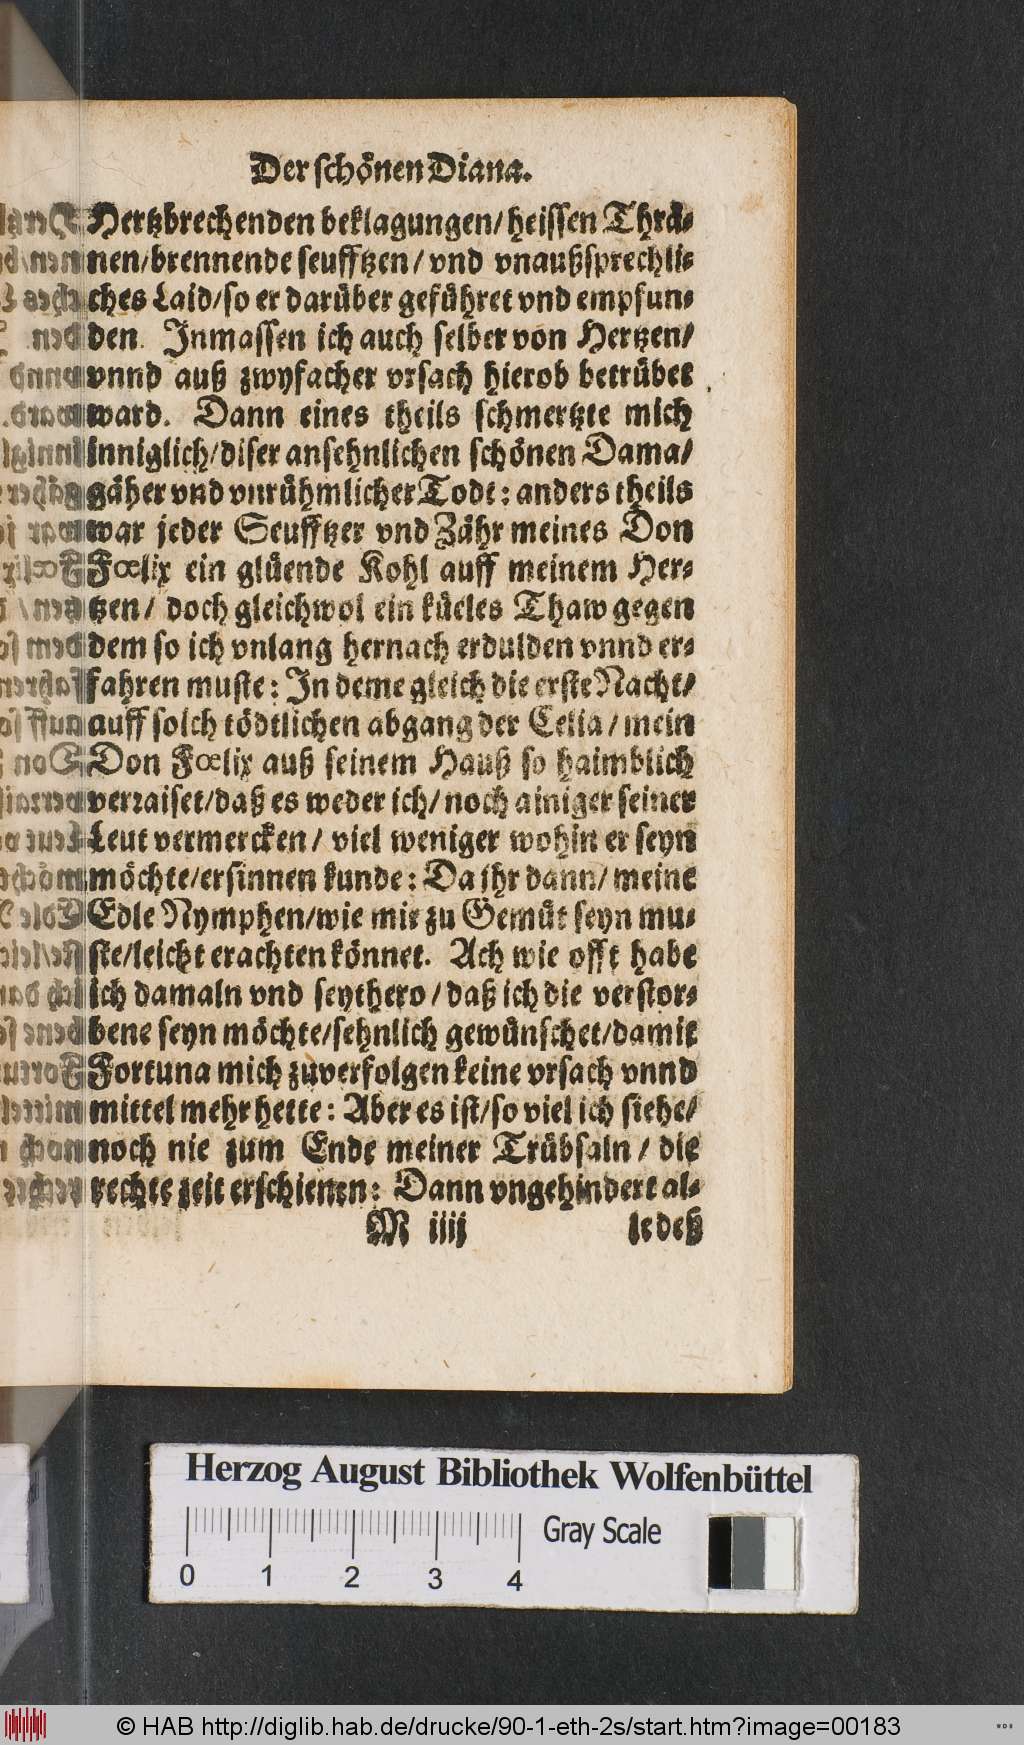 Der schönen Diana.
Hertzbrechenden beklagungen/ heissen Thrä-
nen/ brennende seufftzen/ vnd vnaußsprechli-
ches Laid/ so er darüber geführet vnd empfun-
den. Inmassen ich auch selber von Hertzen/
vnnd auß zwyfacher vrsach hierob betrübet
ward. Dann eines theils schmertzte mich
inniglich/ diser ansehnlichen schönen Dama/
gäher vnd vnrühmlicher Todt: anders theils
war jeder Seufftzer vnd Zähr meines Don
Fœlix ein glüende Kohl auff meinem Her-
tzen/ doch gleichwol ein küeles Thaw gegen
dem so ich vnlang hernach erdulden vnnd er-
fahren muste: In deme gleich die erste Nacht/
auff solch tödtlichen abgang der Celia/ mein
Don Fœlix auß seinem Hauß so haimblich
verraiset/ daß es weder ich/ noch ainiger seiner
Leut vermercken/ viel weniger wohin er seyn
möchte/ ersinnen kunde: Da jhr dann/ meine
Edle Nymphen/ wie mir zu Gemüt seyn mu-
ste/ leicht erachten könnet. Ach wie offt habe
ich damaln vnd seythero/ daß ich die verstor-
bene seyn möchte/ sehnlich gewünschet/ damit
Fortuna mich zuverfolgen keine vrsach vnnd
mittel mehr hette: Aber es ist/ so viel ich siehe/
noch nie zum Ende meiner Trübsaln/ die
rechte zeit erschienen: Dann vngehindert al-
M iiij le deß
Herzog August Bibliothek Wolfenbüttel
0 1 2 3 4 Gray Scale
© HAB http://diglib.hab.de/drucke/90-1-eth-2s/start.htm?image=00183